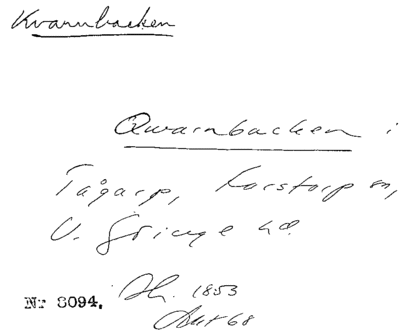 Kvarnbacken
Qwarnbacken i
Tågarp, Korstorp sn,
V. Göinge hd.
Nr 8094. Jh. 1853
Akt 68